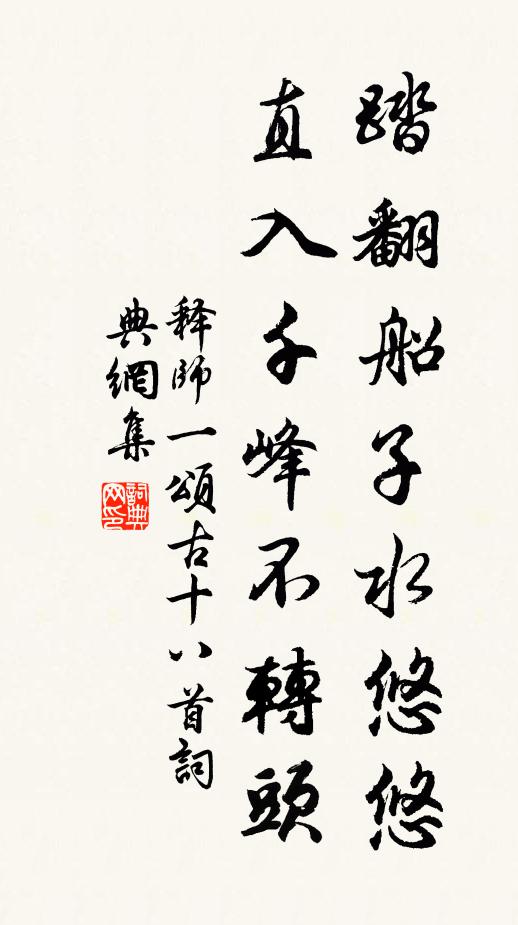 踏翻船子水悠悠
直入千峰不轉頭
释師一頌古十八首詞
典網集
詞典网印